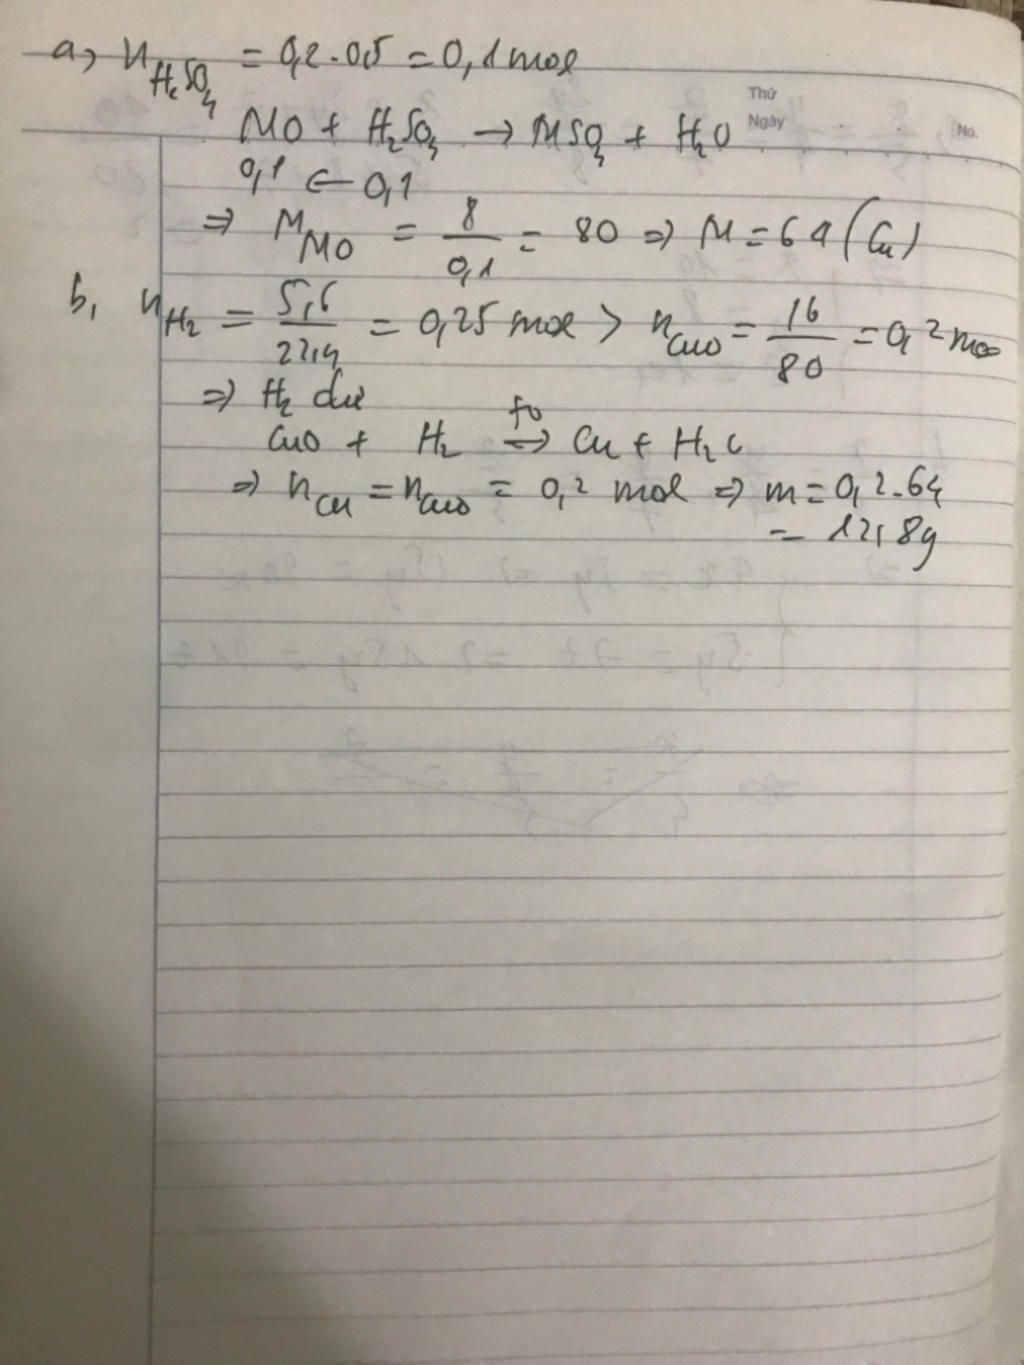 a, n H₂SO₄ = 0,2 . 0,5 = 0,1 mol
Thứ
Ngày
No.
MO + H₂SO₄ → MSO₄ + H₂O
0,1 ← 0,1
⇒ M MO = 8/0,1 = 80 ⇒ M = 64 (Cu)
b, n H₂ = 5,6/22,4 = 0,25 mol > n CuO = 16/80 = 0,2 mo
⇒ H₂ dư
CuO + H₂ t⁰→ Cu + H₂O
⇒ n Cu = n CuO = 0,2 mol ⇒ m = 0,2.64
= 12,8g